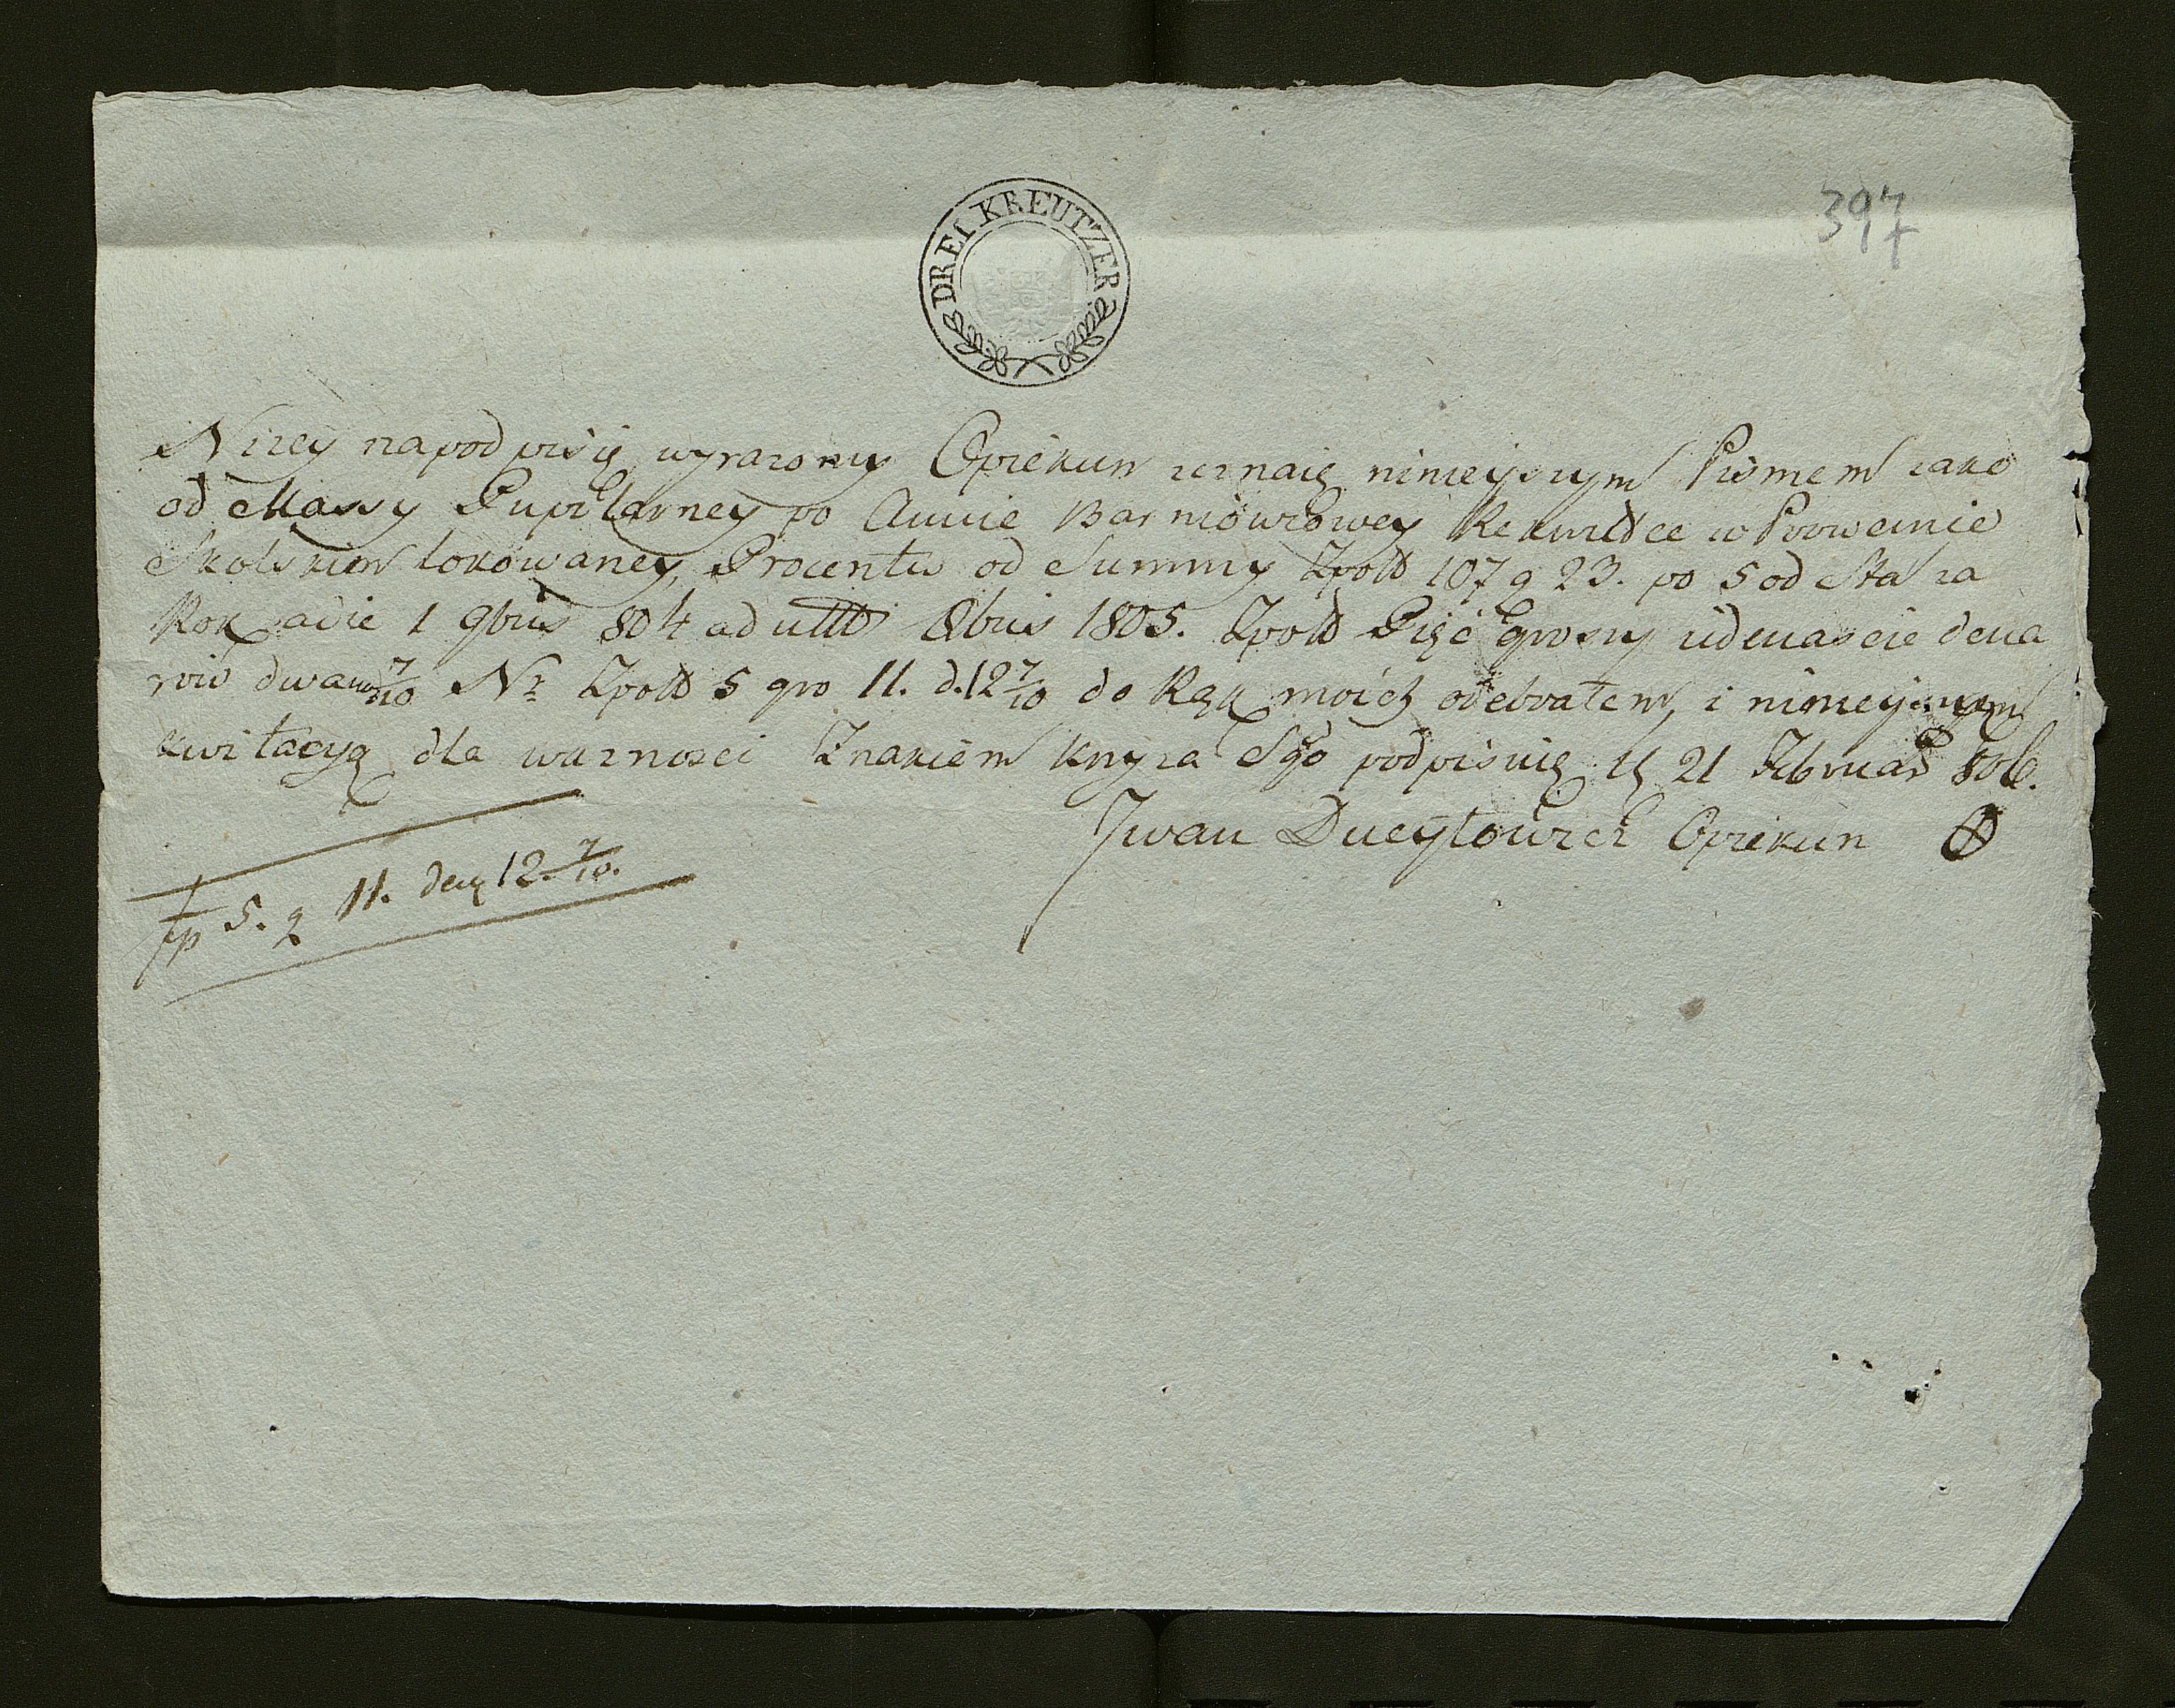 DREI KREUTZER
397
Nizey na podpisię wyrazony Opiekun zeznaię nineyszym Pismem zako
od Massy Pupilarney po Annie Barniowzowey w Prowencie
Skolskim lokowaney, Procentu od Summy Zpoll 107 g 23. po 5 od Sta za
Rok adie 1 9bris 804 ad ulto 8bris 1805. Zpoll Pięć groszy iidenascie dena
rów 7/10 Nr Zpoll 5 gro 11. d. 12 7/10 do Rąk moich odebrałem, i nineyszym
kwitacyą dla waznosci Znakiem Krzyza Sgo podpisuię 21 Februar 806.
Jwan Opiekun
fp 5. g 11. den 12 7/10.